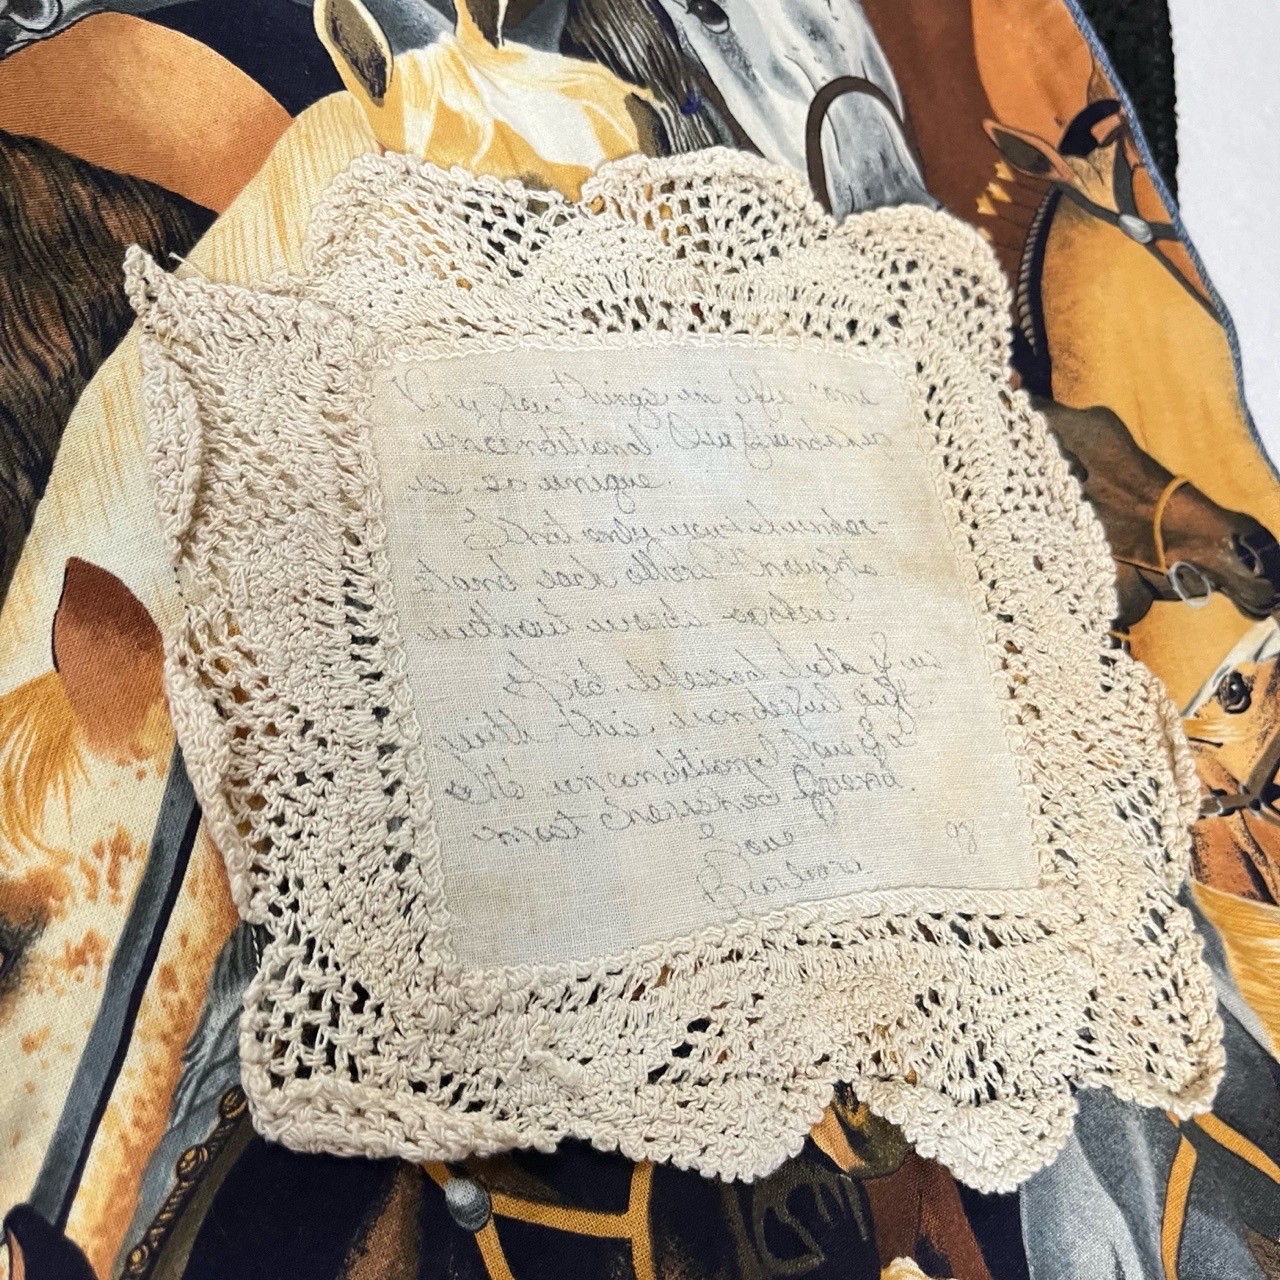 Very few things in life come
unconditional. Our friendship
is so unique.
that only you & I under-
stand each others thoughts
without words spoken.
God blessed both of us
with this wonderful gift.
It's unconditional love of a
most cherished friend.
Love
Barbara